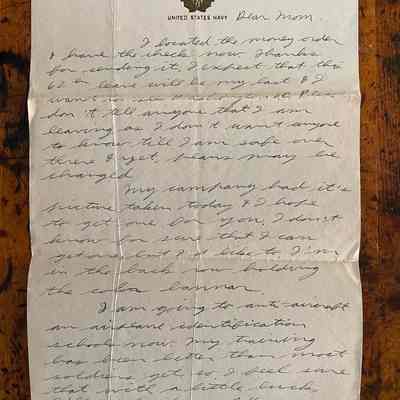 UNITED STATES NAVY
Dear Mom.
I located the money order
& have the check now. Thanks
for sending it. I expect that this
62 hr leave will be my last & I
want to
don't tell anyone that I am
leaving as I don't want anyone
to know till I am safe over
there & yet, plans may be
changed.
My company had it's
picture taken today & I hope
to get one for you. I don't
know for sure that I can
get one but I'd like to. I'm
in the back row holding
the color bannar.
I am going to anti-aircraft
an airplane identification
school now. My training
has been better than most
soldiers get so I feel sure
that with a little luck